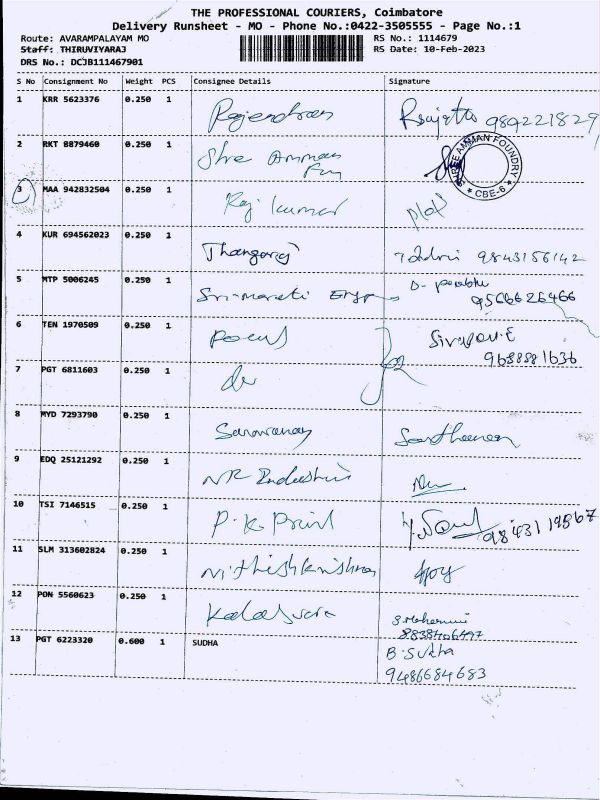 THE PROFESSIONAL COURIERS, Coimbatore
Delivery Runsheet - MO - Phone No.:0422-3505555 - Page No.:1
Route: AVARAMPALAYAM MO RS No.: 1114679
Staff: THIRUVIYARAJ RS Date: 10-Feb-2023
DRS No.: DCJB111467901
S No Consignment No Weight PCS Consignee Details Signature
1 KRR 5623376 0.250 1 Rajendran
2 RKT 8879460 0.250 1 Shre Amman
SHREE AMMAN FOUNDRY * CBE-6 *
3 MAA 942832504 0.250 1 Raj kumar
4 KUR 694562023 0.250 1 Thangaraj 9843156142
5 MTP 5006245 0.250 1 Sri maruti D- prabhu
9566626466
6 TEN 1970509 0.250 1 Focus
9688881636
7 PGT 6811603 0.250 1
8 MYD 7293790 0.250 1 Saravanan
9 EDQ 25121292 0.250 1 NR Industries
10 TSI 7146515 0.250 1 P.K Print
11 SLM 313602824 0.250 1 Nithishkrishna
12 PON 5560623 0.250 1
13 PGT 6223320 0.600 1 SUDHA B. Sudha
9486684683